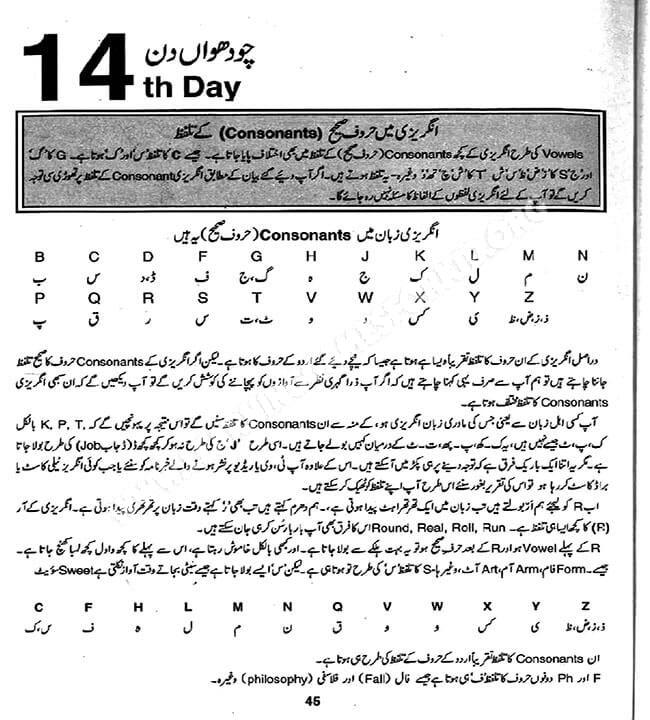 چودھواں دن
14th Day
انگریزی میں حروف صحیح (Consonants) کے تلفظ
Vowels کی طرح انگریزی کے کچھ Consonants (حروف صحیح) کے تلفظ میں بھی اختلاف پایا جاتا ہے۔ جیسے C کا تلفظ س اور ک ہوتا ہے۔ G کا گ
اور ج S کا وغیرہ۔ یہ تلفظ ہوتے ہیں۔ اگر آپ دیئے گئے بیان کے مطابق انگریزی Consonant کے تلفظ پر تھوڑی سی توجہ
کریں گے تو آپ کے لئے انگریزی لفظوں کے الفاظ کا مسئلہ نہیں رہ جائے گا۔
انگریزی زبان میں Consonants (حروف صحیح) یہ ہیں
B C D F G H J K L M N
ب س ڈ،د ف گ،ج ہ ج ک ل م ن
P Q R S T V W X Y Z
پ ق ر س ٹ،ت و و کس ی ذ،ز،ض،ظ
دراصل انگریزی کے ان حروف کا تلفظ تقریباً ویسا ہے ہوتا ہے جیسا کہ نیچے دیئے گئے اردو کے حروف کا ہوتا ہے۔ لیکن اگر انگریزی کے Consonants حروف کا صحیح تلفظ
جاننا چاہتے ہیں تو ہم آپ سے صرف یہی کہنا چاہتے ہیں کہ اگر آپ ذرا گہری نظر سے آوازوں کو پہچاننے کی کوشش کریں گے تو آپ دیکھیں گے کہ ان سبھی انگریزی
Consonants کا تلفظ مختلف ہے۔
آپ کسی اہل زبان سے یعنی جس کی مادری زبان انگریزی ہو، کے منہ سے ان Consonants کا تلفظ سنیں گے تو اس نتیجہ پر پہونچیں گے کہ K, P, T، بالکل
ک، پ، ٹ جیسے نہیں ہیں، یہ ک۔کھ، پ۔پھ، ت۔ٹ کے درمیان کہیں بولے جاتے ہیں۔ اسی طرح 'J' ج کی طرح نہ ہو کر کچھ کچھ ڈ (ڈجاب Job) کی طرح بولا جاتا
ہے۔ مگر یہ اتنا ایک باریک فرق ہے کہ توجہ دینے پر ہی پکڑ میں آسکتے ہیں۔ اس کے علاوہ آپ ٹی، وی یا ریڈیو پر نشر ہونے والے خبرنامہ کو سننے یا جب کوئی انگریز ٹیلی کاسٹ یا
براڈ کاسٹ کر رہا ہو تو اس کی تقریر بغور سنئے اس طرح آپ اپنے تلفظ کو ٹھیک کرسکتے ہیں۔
اب R کو لیجئے ہم آر بولتے ہیں تب زبان میں ایک تھرتھراہٹ پیدا ہوتی ہے، ہم دھرم کہتے ہیں تب بھی 'ر' کہتے وقت زبان پر تھرتھری پیدا ہوتی ہے۔ انگریزی کے آر
(R) کا کچھ ایسا ہی تلفظ ہے۔ Round, Real, Roll, Run اس کا فرق بھی آپ بار بار سن کر ہی جان سکتے ہیں۔
R کے پہلے Vowel ہو اور R کے بعد حرف صحیح ہو تو یہ بہت ہلکے سے بولا جاتا ہے۔ اور کبھی بالکل خاموش رہتا ہے، اس سے پہلے کا کچھ واول کچھ لمبا کھنچ جاتا ہے۔
جیسے۔ Form فام، Arm آم، Art آٹ، وغیرہا۔ S کا تلفظ 'س' کی طرح تو ہوتا ہی ہے۔ لیکن س ایسے بولا جاتا ہے جیسے سیٹی بجاتے وقت آواز نکلتی ہے Sweet سوئیٹ
C F H L M N Q V W X Y Z
س،ک ف ہ ل م ن ق و و کس ی ذ،ز،ض،ظ
ان Consonants کا تلفظ تقریباً اردو کے حروف کے تلفظ کی طرح ہی ہوتا ہے۔
F اور Ph دونوں حروف کا تلفظ 'ف' ہی ہوتا ہے جیسے فال (Fall) اور فلاسفی (philosophy) وغیرہ۔
45